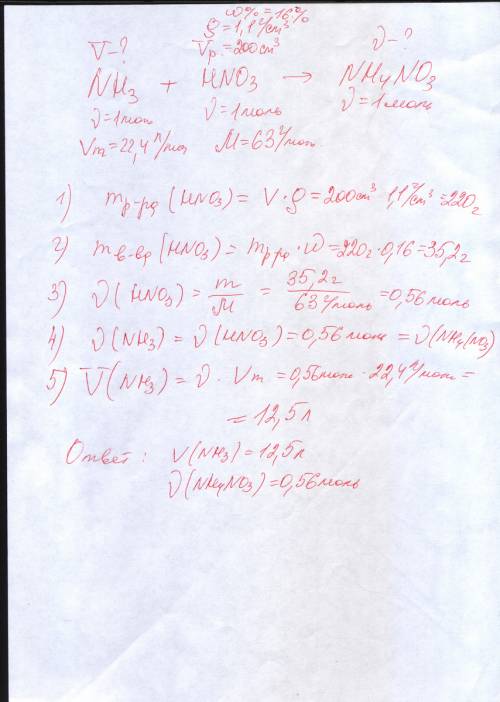 ω% = 16%
V-? ρ = 1,1 г/см³ ν-?
Vр. = 200 см³
NH3 + HNO3 → NH4NO3
ν = 1 моль ν = 1 моль ν = 1 моль
Vm = 22,4 л/моль M = 63 г/моль
1) mр-ра (HNO3) = V · ρ = 200 см³ · 1,1 г/см³ = 220 г
2) mв-ва (HNO3) = mр-ра · ω = 220 г · 0,16 = 35,2 г
3) ν (HNO3) = m/M = 35,2 г / 63 г/моль = 0,56 моль
4) ν (NH3) = ν (HNO3) = 0,56 моль = ν (NH4NO3)
5) V (NH3) = ν · Vm = 0,56 моль · 22,4 л/моль =
= 12,5 л
Ответ: V (NH3) = 12,5 л
ν (NH4NO3) = 0,56 моль